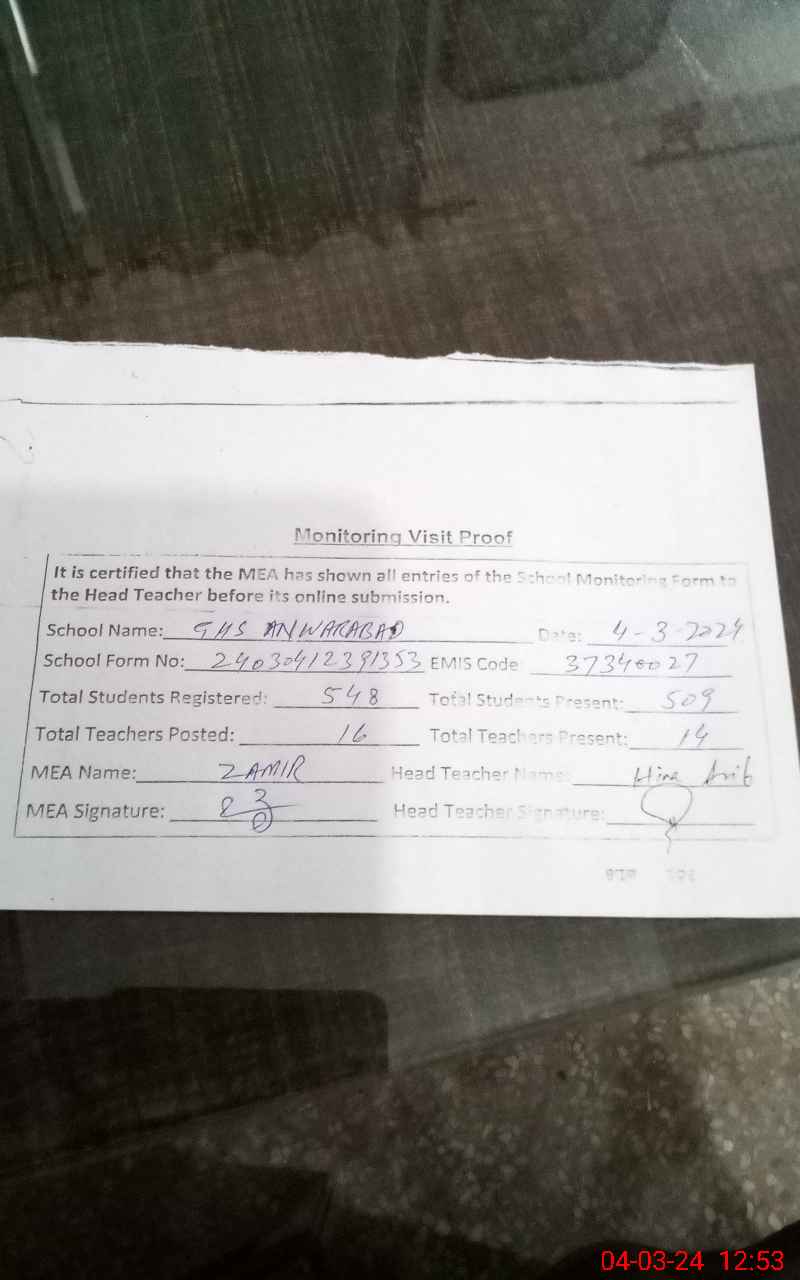 Monitoring Visit Proof
It is certified that the MEA has shown all entries of the School Monitoring Form to
the Head Teacher before its online submission.
School Name: GHS ANWARABAD Date: 4-3-2024
School Form No: 24030412391353 EMIS Code 37340027
Total Students Registered: 548 Total Students Present: 509
Total Teachers Posted: 16 Total Teachers Present: 14
MEA Name: ZAMIR Head Teacher Name: Hina Arif
MEA Signature: Head Teacher Signature:
04-03-24 12:53